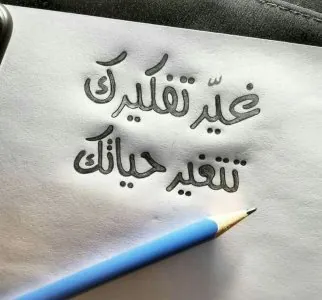 غيّر تفكيرك
تتغير حياتك